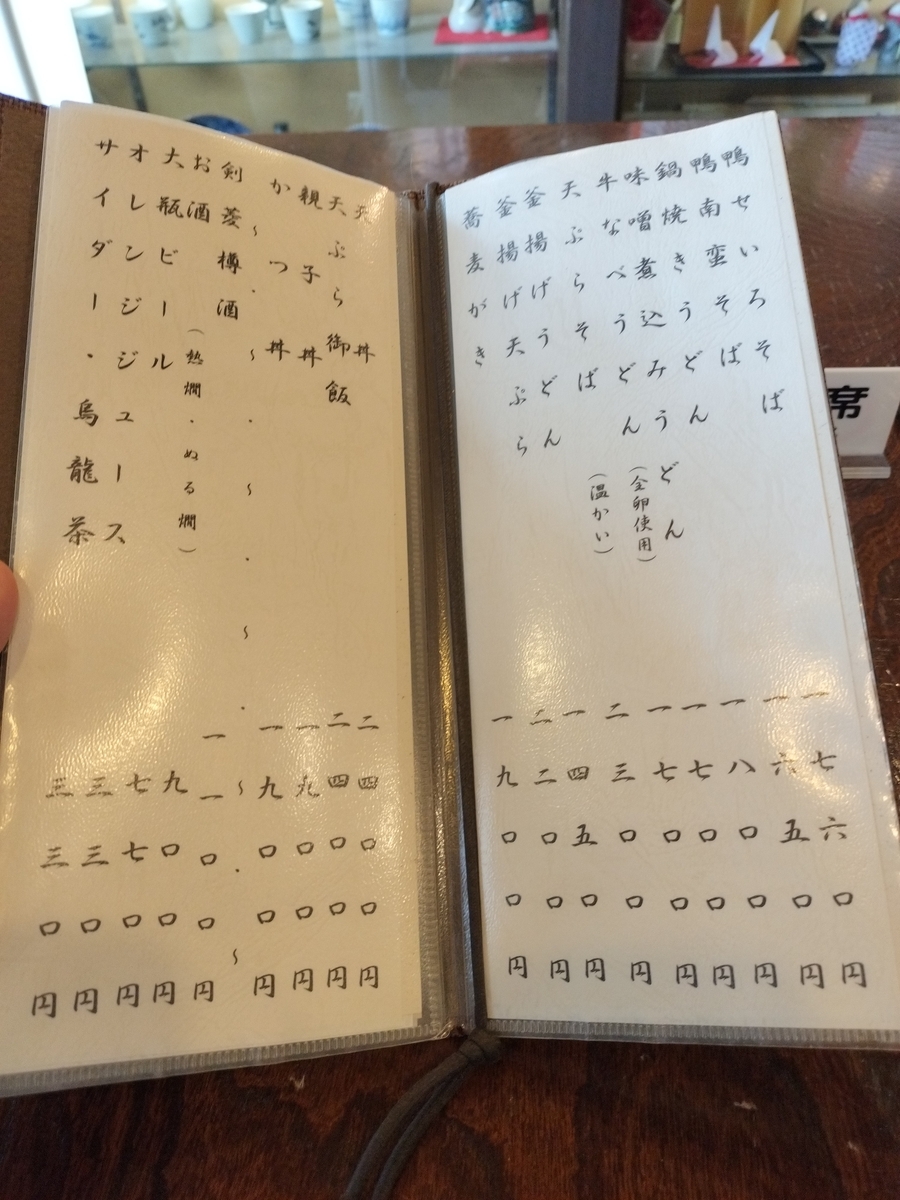 鴨セいろそば 一七六〇円
鴨南蛮そば 一六五〇円
鍋焼きうどん 一八〇〇円
味噌煮込みうどん（全卵使用） 一七〇〇円
牛なべうどん 一七〇〇円
天ぷらそば（温かい） 二三〇〇円
釜揚げうどん 一四五〇円
釜揚げ天ぷら 二二〇〇円
蕎麦がき 一九〇〇円
天丼 二四〇〇円
天ぷら御飯 二四〇〇円
親子丼 一九〇〇円
かつ丼 一九〇〇円
〜・〜・〜・〜・〜・〜
剣菱樽酒 一一〇〇円
お酒（熱燗・ぬる燗） 九〇〇円
大瓶ビール 七七〇円
オレンジジュース 三三〇円
サイダー・烏龍茶 三三〇円
席